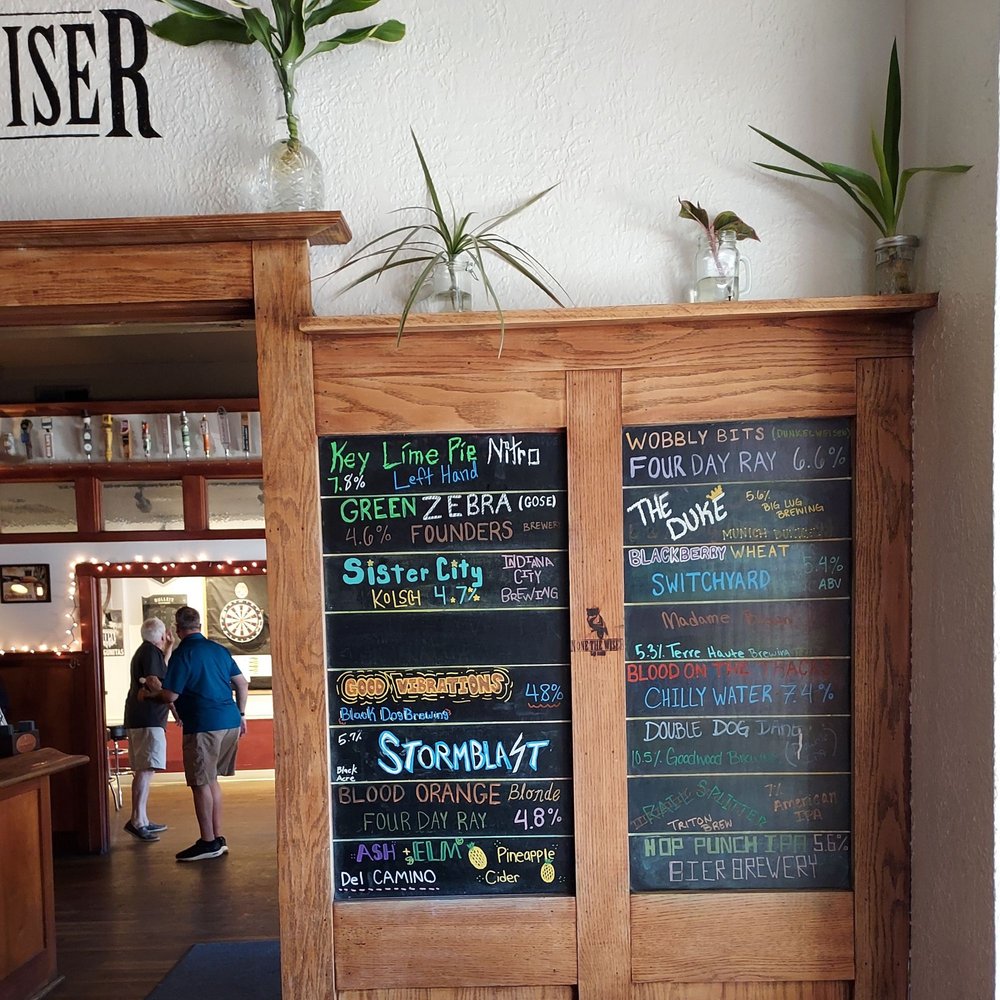 ISER
Key Lime Pie Nitro
7.8% Left Hand
GREEN ZEBRA (GOSE)
4.6% FOUNDERS BREWERY
Sister City
KOLSCH 4.7%
INDIANA
CITY
BREWING
GOOD VIBRATIONS
4.8%
Black Dog Brewing
5.7%
STORMBLAST
Black
Acre
BLOOD ORANGE Blonde
FOUR DAY RAY 4.8%
ASH + ELM
Pineapple
Cider
Del CAMINO
NONE THE WISER
WOBBLY BITS (DUNKELWEISEN)
FOUR DAY RAY 6.6%
THE
DUKE
5.6%
BIG LUG
BREWING
MUNICH
BLACKBERRY WHEAT
5.4%
ABV
SWITCHYARD
Madame
5.3% Terre Haute Brewing
BLOOD ON THE TRACKS
CHILLY WATER 7.4%
DOUBLE DOG DANG
10.5% Goodwood Brewing
RAIL SPLITTER
7%
American
IPA
TRITON BREW
HOP PUNCH IPA 5.6%
BIER BREWERY